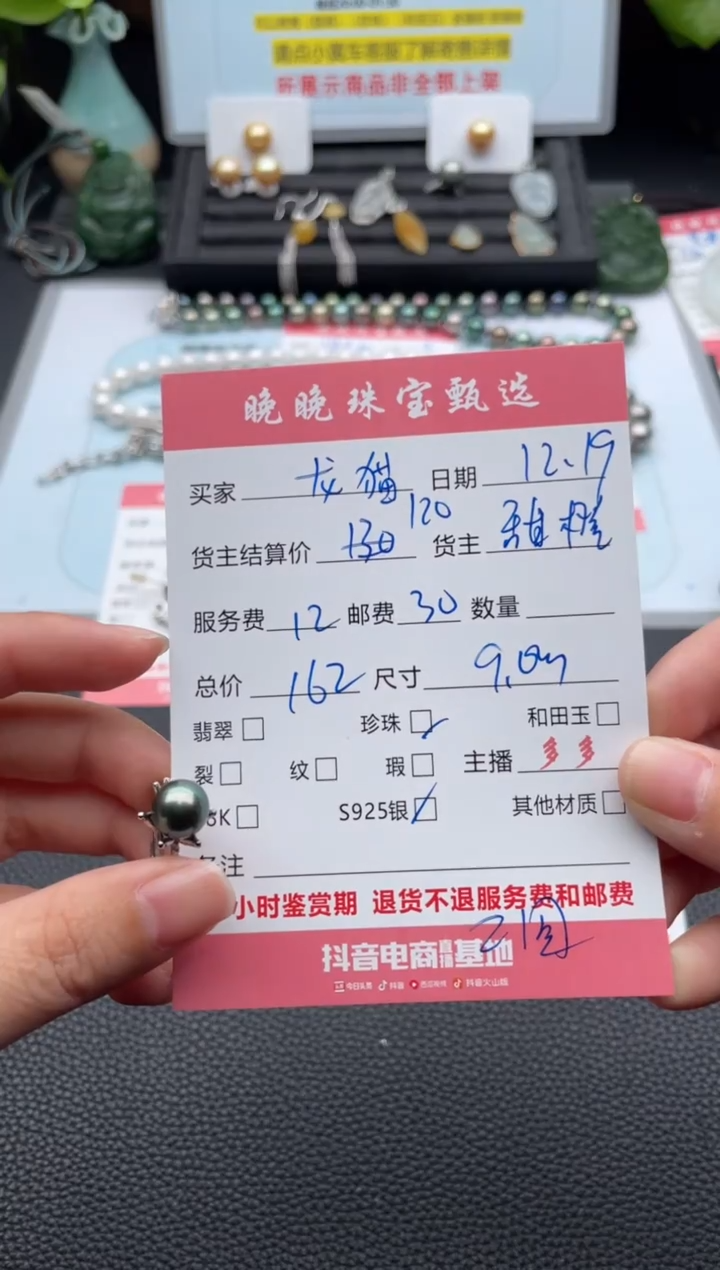 请点小黄车客服了解规售详情
所展示商品非全部上架
晚晚珠宝甄选
买家 龙猫 日期 12.19
货主结算价 130 120 货主
服务费 12 邮费 30 数量
总价 162 尺寸 9.0m
翡翠 珍珠 和田玉
裂 纹 瑕 主播 多多
K S925银 其他材质
备注
小时鉴赏期 退货不退服务费和邮费
正圆
抖音电商直播基地
今日头条 抖音 西瓜视频 抖音火山版